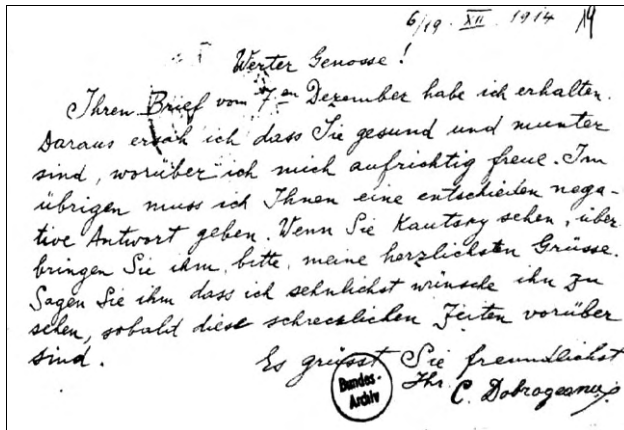 6/19 · XII · 1914 19
Werter Genosse!
Ihren Brief vom 7en Dezember habe ich erhalten.
Daraus ersah ich dass Sie gesund und munter
sind, worüber ich mich aufrichtig freue. Im
übrigen muss ich Ihnen eine entschieden nega-
tive Antwort geben. Wenn Sie Kautsky sehen, über
bringen Sie ihm, bitte, meine herzlichsten Grüsse.
Sagen Sie ihm dass ich sehnlichst wünsche ihn zu
sehen, sobald diese schrecklichen Zeiten vorüber
sind.
Es grüsst Sie freundlichst
Ihr
C. Dobrogeanu
Bundes-
Archiv